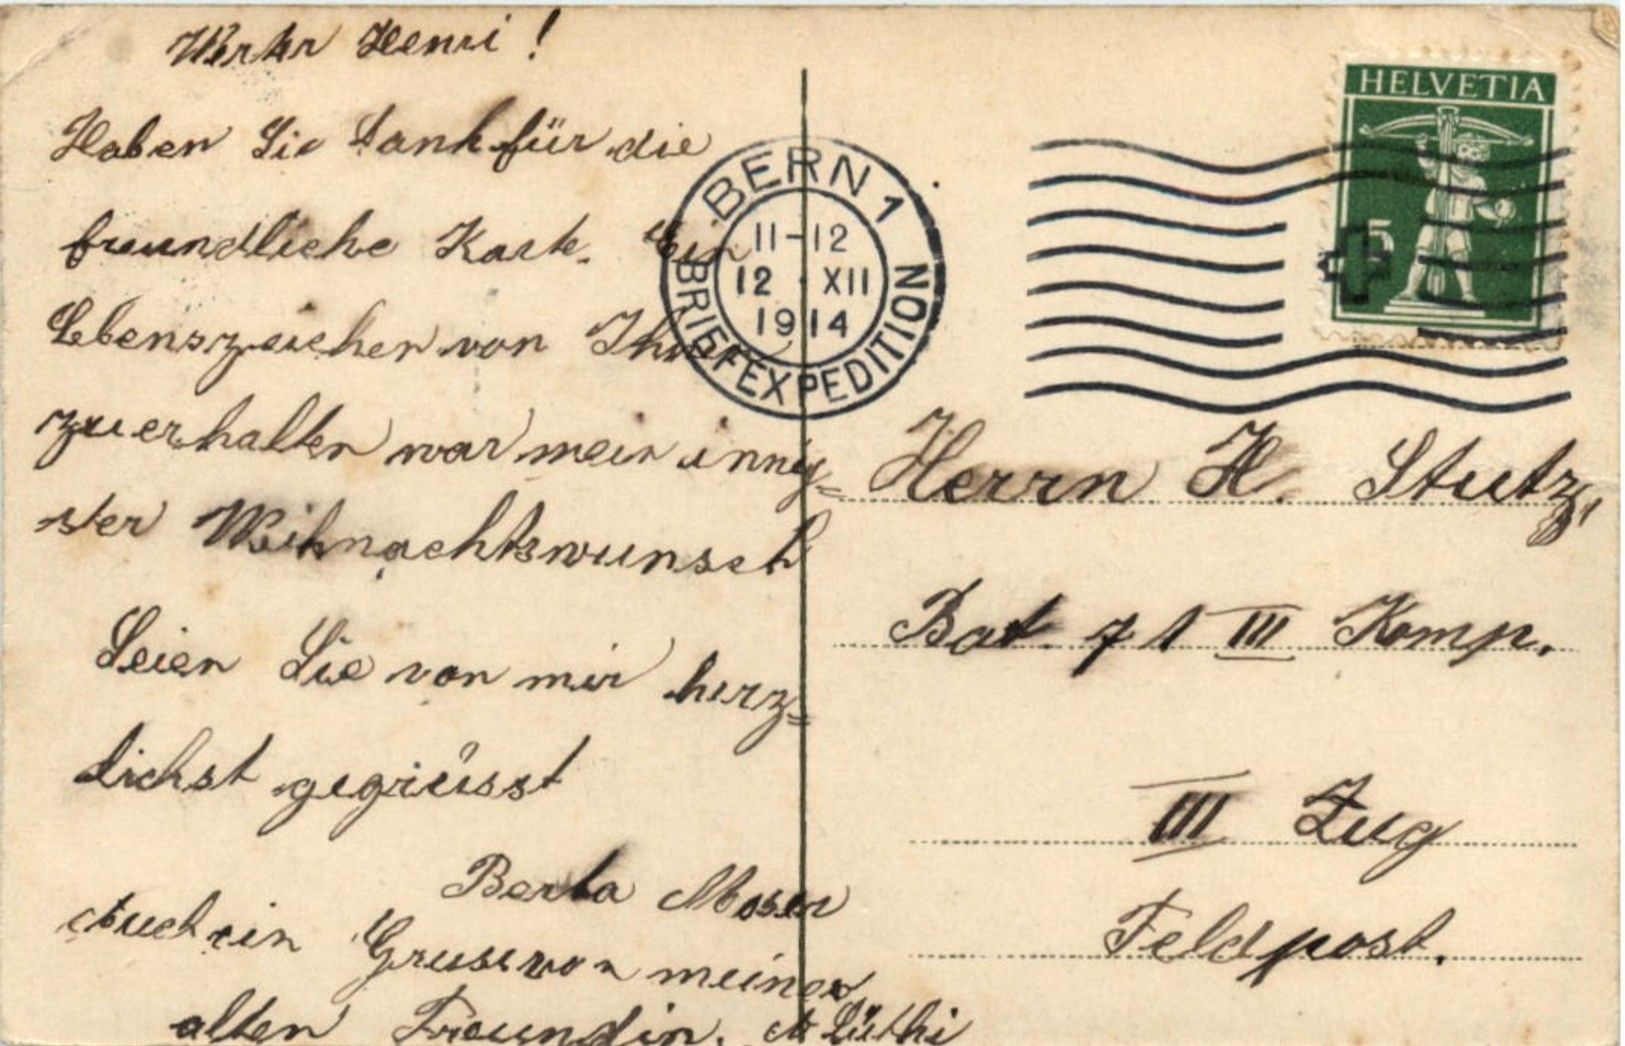 Werter Henri!
Haben Sie Dank für die
freundliche Karte. Ein
Lebenszeichen von Ihnen
zu erhalten war mein innig=
ster Weihnachtswunsch
Seien Sie von mir herz=
lichst gegrüsst
Berta Moser
Auch ein Gruss von meiner
alten Freundin. M Lüthi
BERN 1
11-12
12 · XII
1914
BRIEFEXPEDITION
HELVETIA
5
Herrn H. Stutz,
Bat. 71 III Komp.
III Zug
Feldpost.